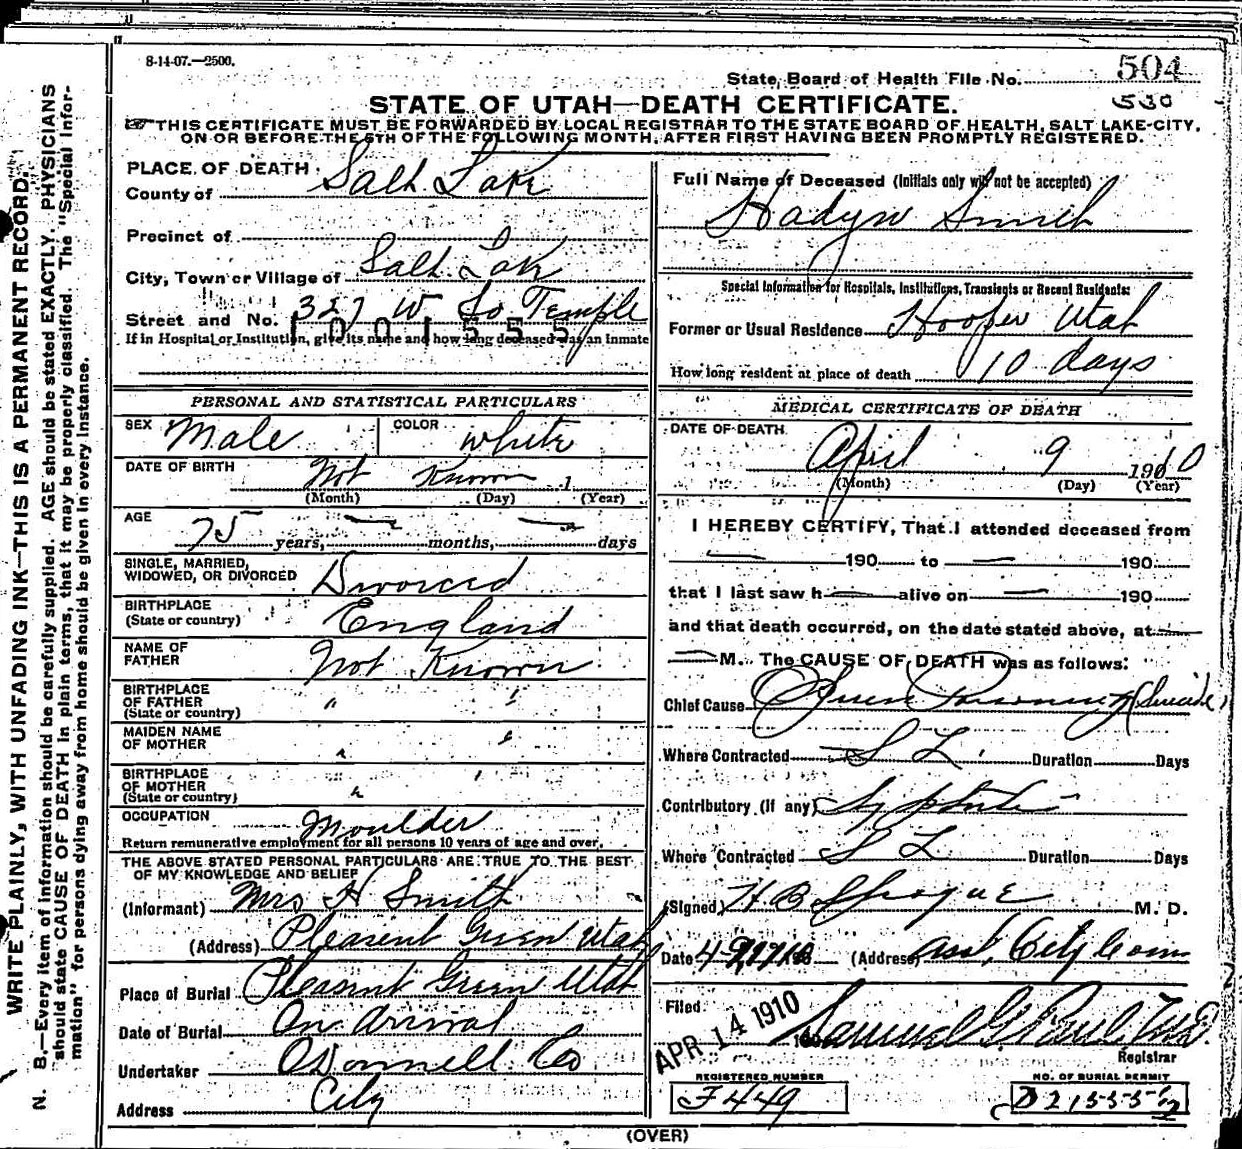 8-14-07.—2500.
State Board of Health File No. 504
530
STATE OF UTAH—DEATH CERTIFICATE.
THIS CERTIFICATE MUST BE FORWARDED BY LOCAL REGISTRAR TO THE STATE BOARD OF HEALTH, SALT LAKE CITY,
ON OR BEFORE THE 5TH OF THE FOLLOWING MONTH, AFTER FIRST HAVING BEEN PROMPTLY REGISTERED.
WRITE PLAINLY, WITH UNFADING INK—THIS IS A PERMANENT RECORD.
N. B.—Every item of information should be carefully supplied. AGE should be stated EXACTLY. PHYSICIANS
should state CAUSE OF DEATH in plain terms, that it may be properly classified. The "Special Infor-
mation" for persons dying away from home should be given in every instance.
PLACE OF DEATH
County of Salt Lake
Precinct of
City, Town or Village of Salt Lake
Street and No. 327 W So Temple
1001555
If in Hospital or Institution, give its name and how long deceased was an inmate
PERSONAL AND STATISTICAL PARTICULARS
SEX Male COLOR white
DATE OF BIRTH Not Known 1
(Month) (Day) (Year)
AGE
75 years, — months, — days
SINGLE, MARRIED,
WIDOWED, OR DIVORCED Divorced
BIRTHPLACE
(State or country) England
NAME OF
FATHER Not Known
BIRTHPLACE
OF FATHER " "
(State or country)
MAIDEN NAME
OF MOTHER " "
BIRTHPLACE
OF MOTHER " "
(State or country)
OCCUPATION Moulder
Return remunerative employment for all persons 10 years of age and over.
THE ABOVE STATED PERSONAL PARTICULARS ARE TRUE TO THE BEST
OF MY KNOWLEDGE AND BELIEF
(Informant) Mrs H Smith
(Address) Pleasent Green Utah
Place of Burial Pleasent Green Utah
Date of Burial On Arrival
Undertaker O'Donnell Co
Address City
Full Name of Deceased (Initials only will not be accepted)
Hadyn Smith
Special Information for Hospitals, Institutions, Transients or Recent Residents:
Former or Usual Residence Hooper Utah
How long resident at place of death 10 days
MEDICAL CERTIFICATE OF DEATH
DATE OF DEATH
April 9 1910
(Month) (Day) (Year)
I HEREBY CERTIFY, That I attended deceased from
— 190 to — 190
that I last saw h— alive on — 190
and that death occurred, on the date stated above, at —
— M. The CAUSE OF DEATH was as follows:
Chief Cause Poisoning (Suicide)
Where Contracted S L. Duration Days
Contributory (If any)
Where Contracted S L Duration Days
(Signed) H B Sprague M. D.
Date (Address) Asst. City
Filed
APR 14 1910 Samuel G Paul M.D.
Registrar
REGISTERED NUMBER
F 449
NO. OF BURIAL PERMIT
(OVER)